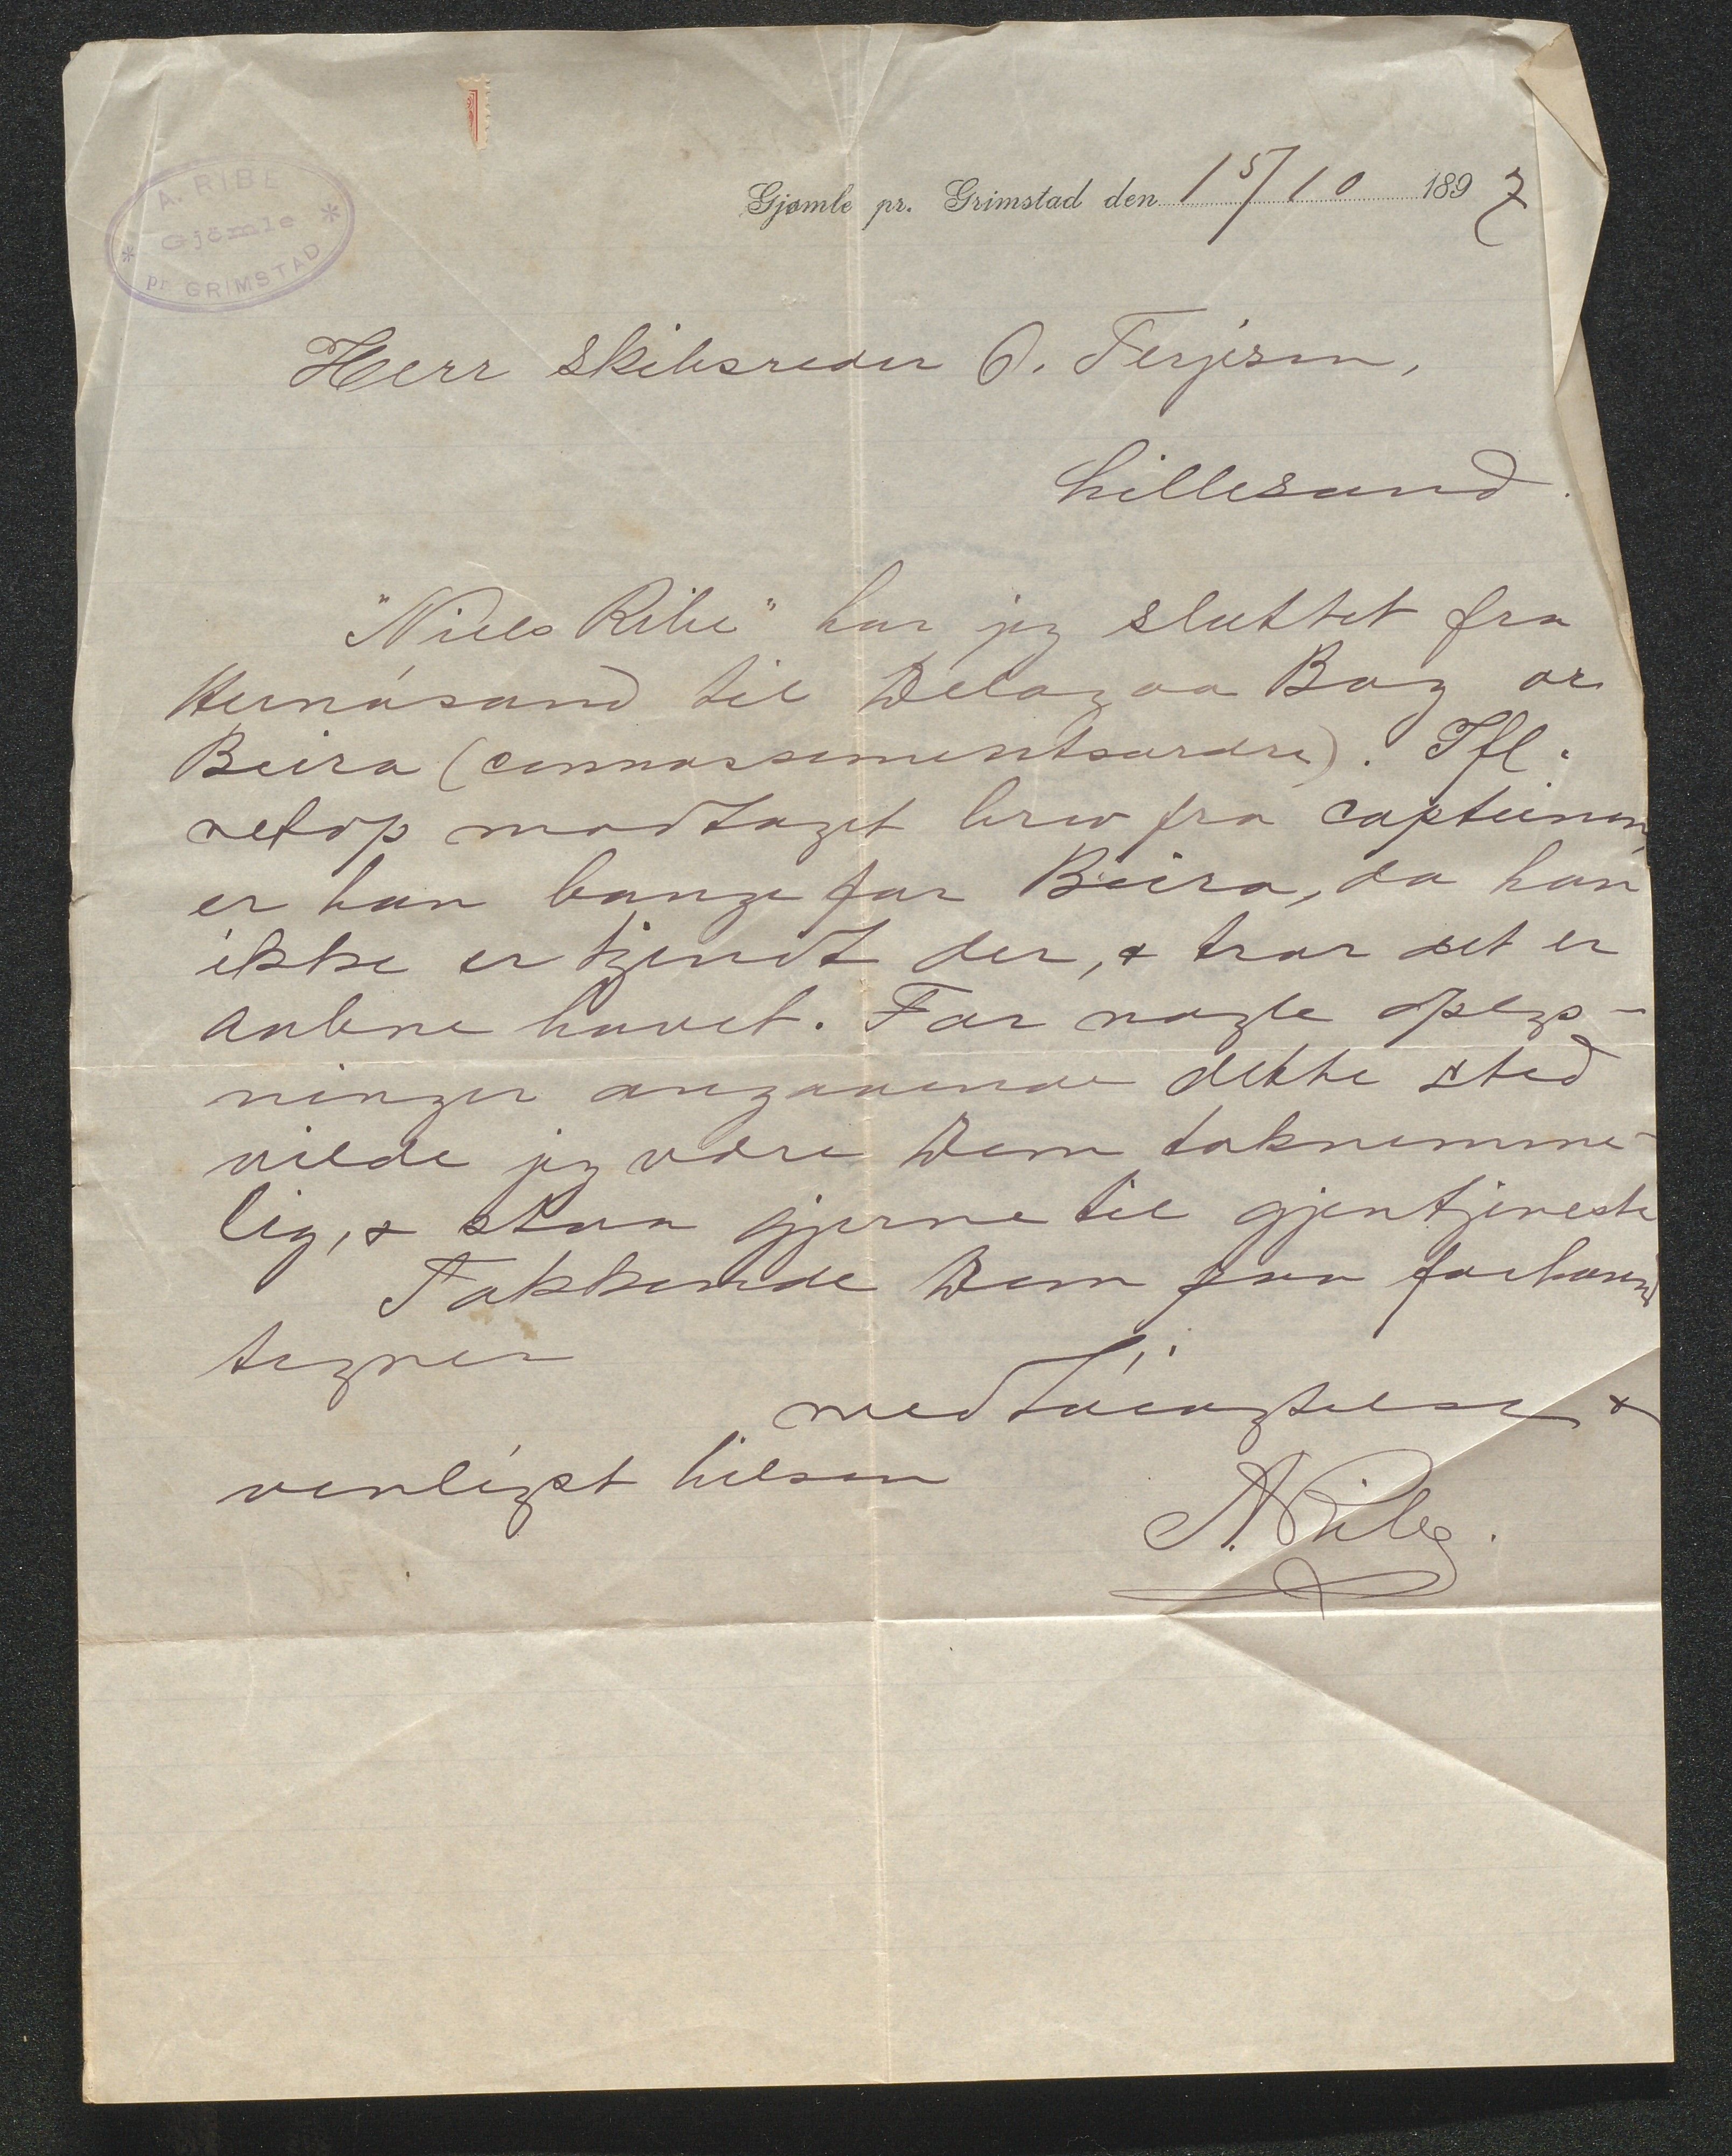 A. RIBE
* Gjömle *
pr. GRIMSTAD
Gjømle pr. Grimstad den 15/10 1897
Herr skibsreder O. Terjesen,
Lillesand.
"Niels Ribe" har jeg sluttet fra
Hernösand til Delagoa Bay or
Beira (connossementsordre). Ifl.
netop modtaget brev fra capteinen,
er han bange for Beira, da han
ikke er kjendt der, & tror det er
aabne havet. For nogle oplys-
ninger angaaende dette sted
vilde jeg være Dem taknemme-
lig, & staa gjerne til gjentjeneste
Takkende Dem paa forhaand
tegner
med höiagtelse &
venligst hilsen
A. Ribe.